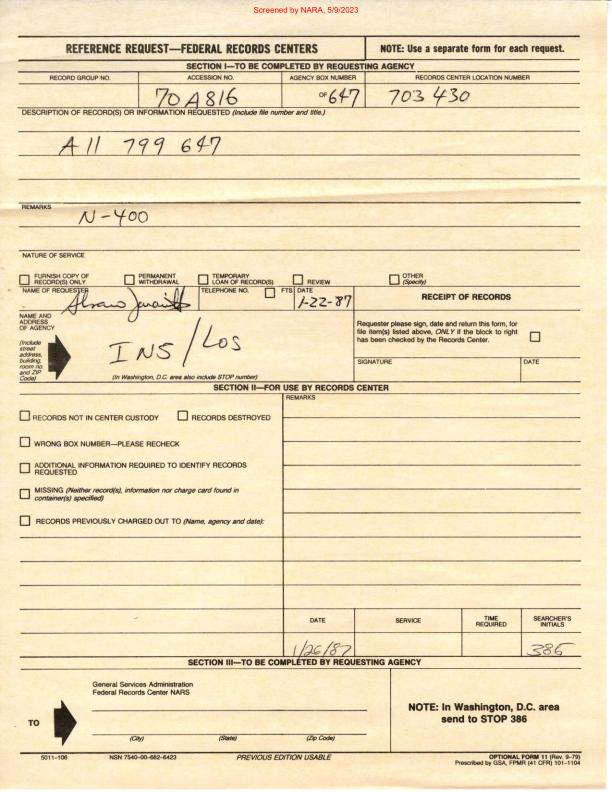 Screened by NARA, 5/9/2023
REFERENCE REQUEST—FEDERAL RECORDS CENTERS
NOTE: Use a separate form for each request.
SECTION I—TO BE COMPLETED BY REQUESTING AGENCY
RECORD GROUP NO. ACCESSION NO. AGENCY BOX NUMBER RECORDS CENTER LOCATION NUMBER
70A816 OF 647 703 430
DESCRIPTION OF RECORD(S) OR INFORMATION REQUESTED (Include file number and title.)
A 11 799 647
REMARKS
N-400
NATURE OF SERVICE
FURNISH COPY OF RECORD(S) ONLY
PERMANENT WITHDRAWAL
TEMPORARY LOAN OF RECORD(S)
REVIEW
OTHER (Specify)
NAME OF REQUESTER
TELEPHONE NO. FTS DATE
1-22-87
RECEIPT OF RECORDS
NAME AND ADDRESS OF AGENCY
(Include street address, building, room no. and ZIP Code)
INS/LOS
(In Washington, D.C. area also include STOP number)
Requester please sign, date and return this form, for
file item(s) listed above, ONLY if the block to right
has been checked by the Records Center.
SIGNATURE DATE
SECTION II—FOR USE BY RECORDS CENTER
RECORDS NOT IN CENTER CUSTODY RECORDS DESTROYED
REMARKS
WRONG BOX NUMBER—PLEASE RECHECK
ADDITIONAL INFORMATION REQUIRED TO IDENTIFY RECORDS
REQUESTED
MISSING (Neither record(s), information nor charge card found in
container(s) specified)
RECORDS PREVIOUSLY CHARGED OUT TO (Name, agency and date):
DATE SERVICE TIME REQUIRED SEARCHER'S INITIALS
1/26/87 386
SECTION III—TO BE COMPLETED BY REQUESTING AGENCY
General Services Administration
Federal Records Center NARS
TO
(City) (State) (Zip Code)
NOTE: In Washington, D.C. area
send to STOP 386
5011-106 NSN 7540-00-682-6423 PREVIOUS EDITION USABLE
OPTIONAL FORM 11 (Rev. 9-79)
Prescribed by GSA, FPMR (41 CFR) 101-1104